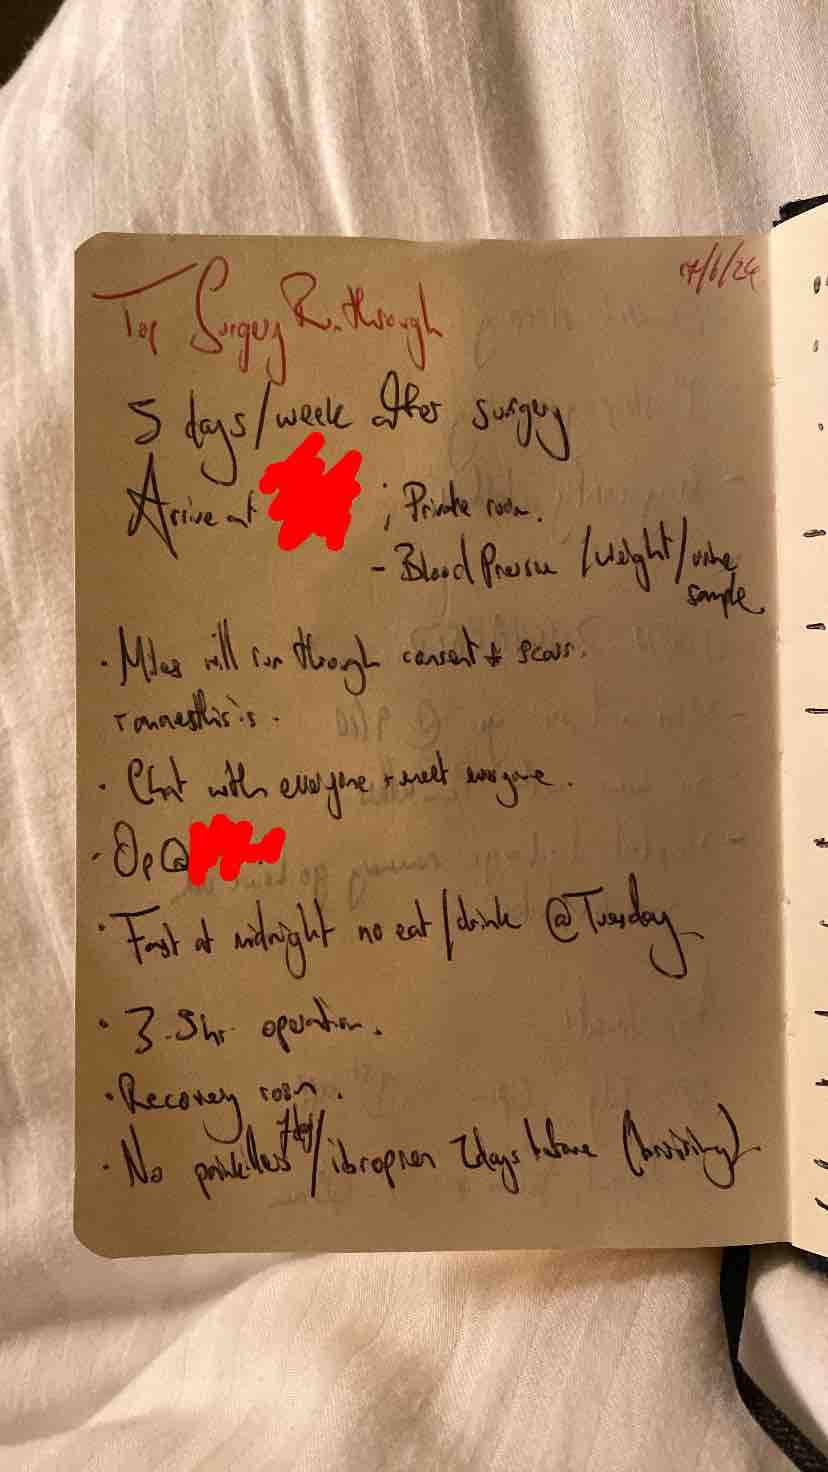 7/6/24
Top Surgery Runthrough
5 days/week after surgery
Arrive at ; Private room.
- Blood Pressure /weight/urine
sample
· Miles will run through consent + scars.
+ anaesthis's.
· Chat with everyone + meet everyone.
· Op@
· Fast at midnight no eat/drink @Tuesday
· 3-5hr operation.
· Recovery room.
7 day
· No painkillers/ibropren days before (bruising)